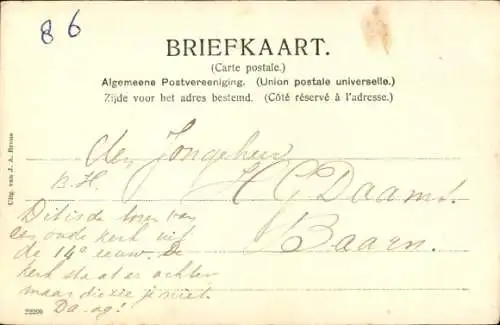 86
BRIEFKAART.
(Carte postale.)
Algemeene Postvereeniging. (Union postale universelle.)
Zijde voor het adres bestemd. (Côté réservé à l'adresse.)
Uitg. van J. A.
den Jongeheer
B.H.
H C Daams.
Baarn.
Dit is de toren van
een oude kerk uit
de 14e eeuw. De
kerk staat er achter
maar die zie je niet.
Da-ag!